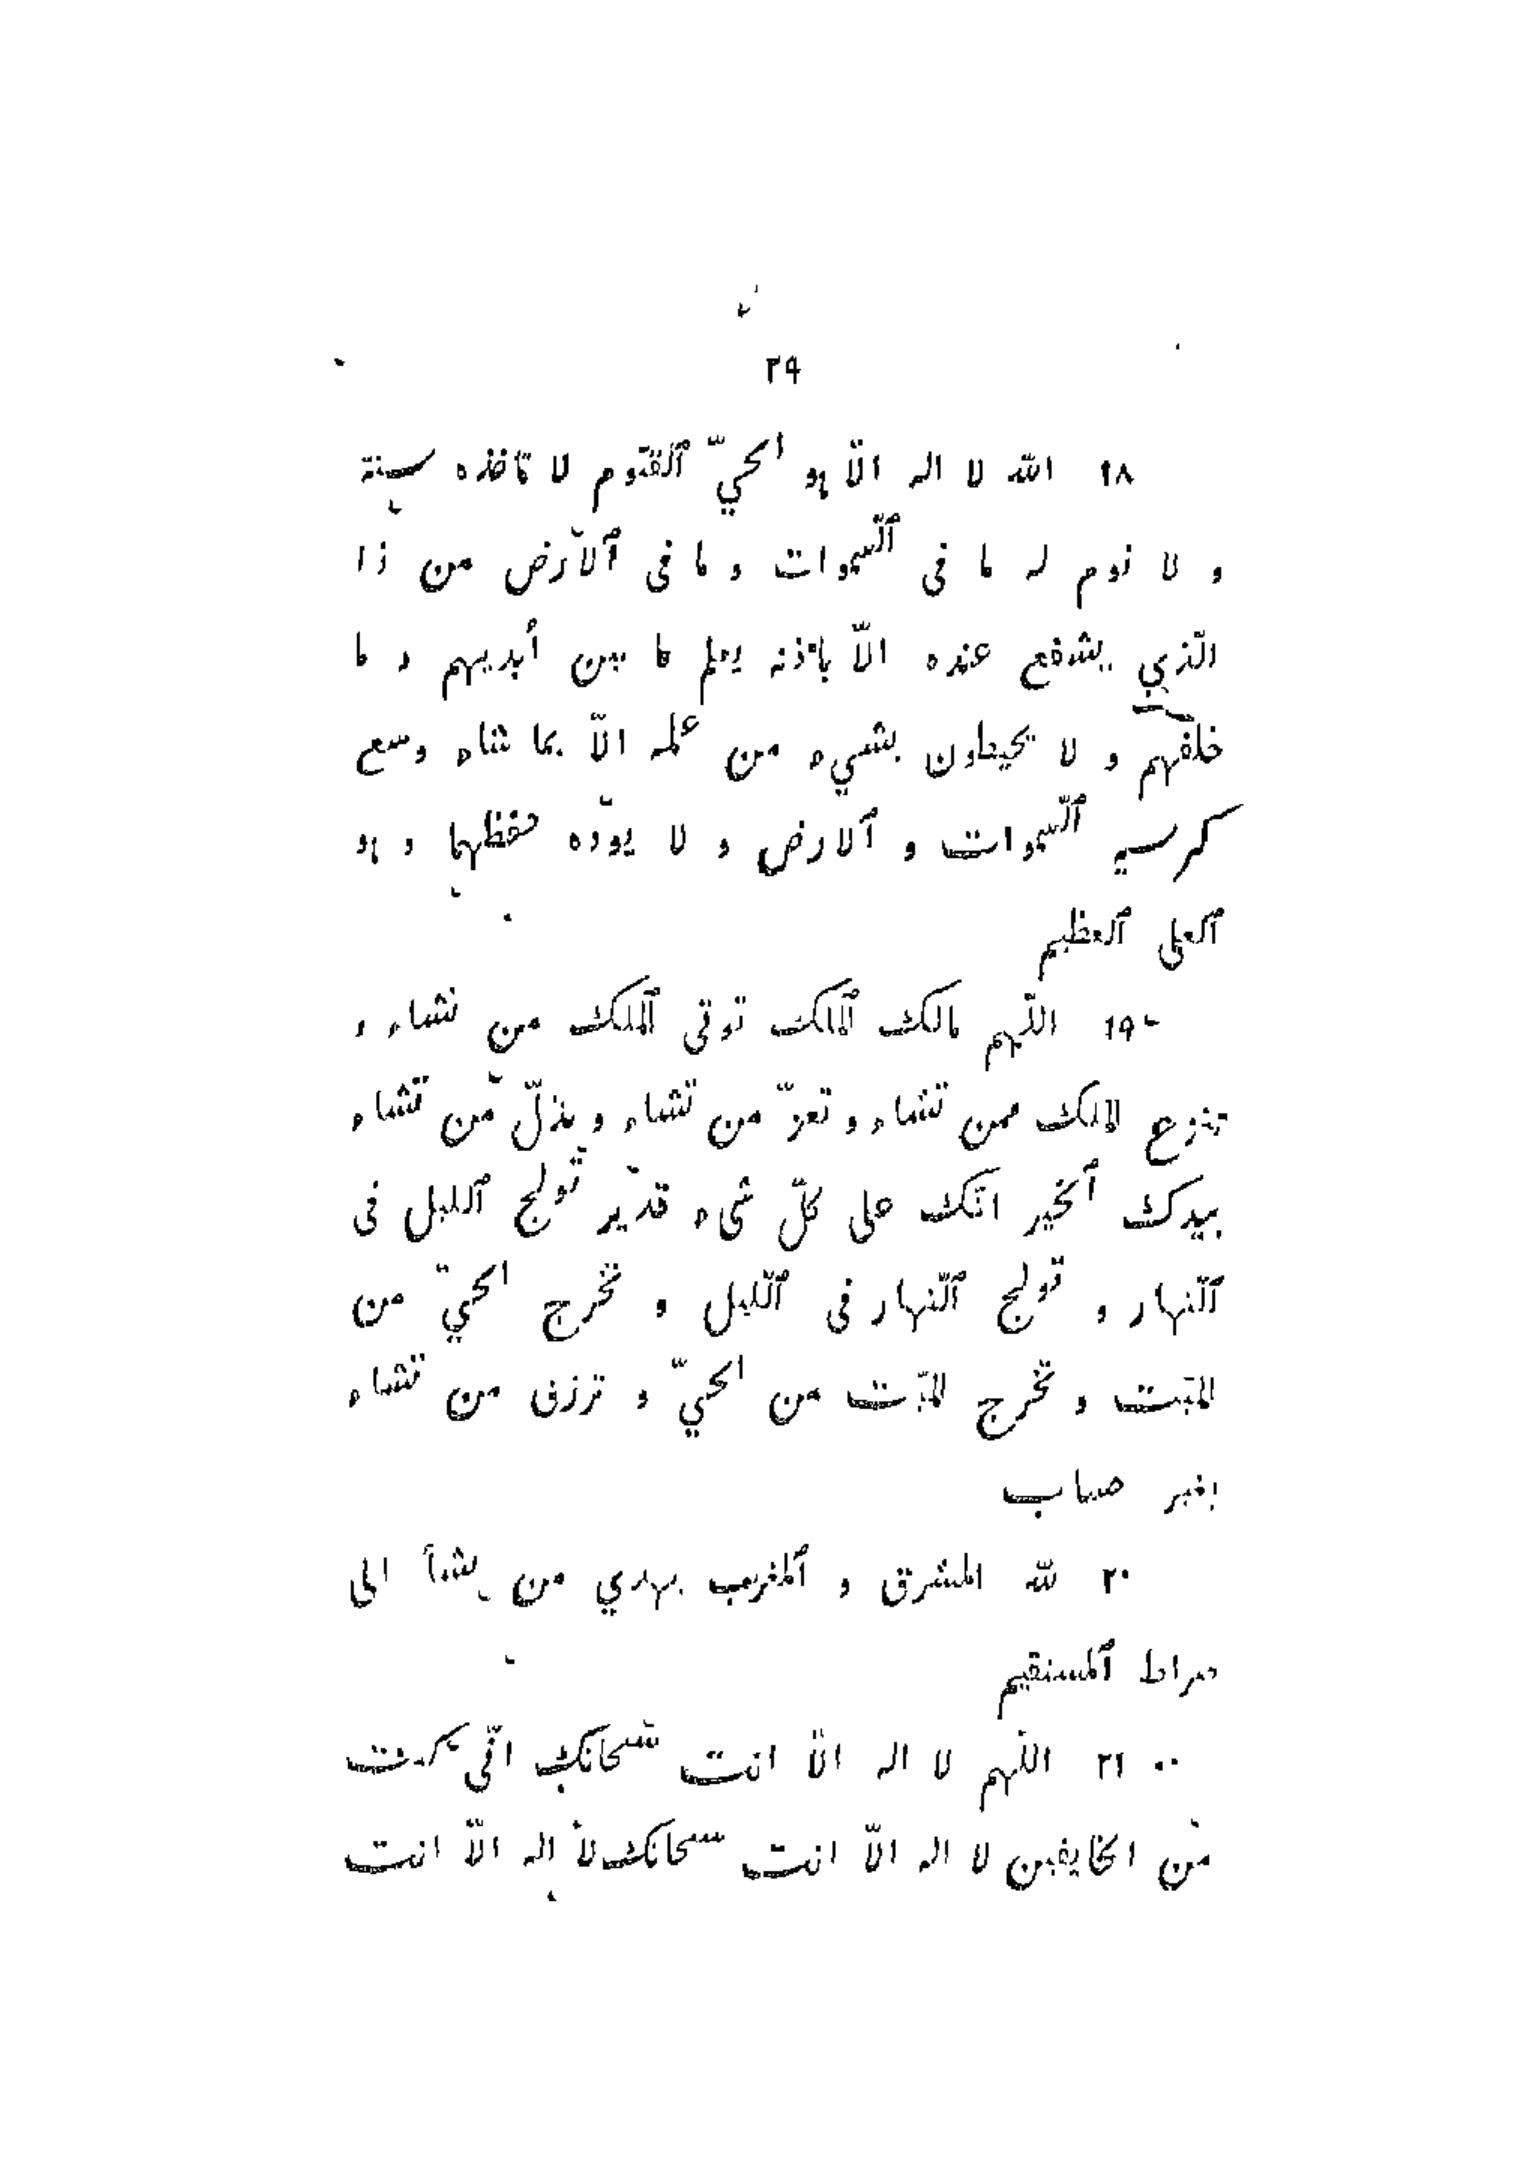 ٢٩
١٨ الله لا اله الّا هو الحيّ ٱلقيّوم لا تاخذه سنة
و لا نوم له ما فى ٱلسّموات و ما فى ٱلارض من ذا
الّذي يشفع عنده الّا باذنه يعلم ما بين أيديهم و ما
خلفهم و لا يحيطون بشيء من علمه الّا بما شاء وسع
كرسيه ٱلسّموات و ٱلارض و لا يوده حفظهما و هو
ٱلعلى ٱلعظيم
١٩ اللّهم مالك ٱلملك توتى ٱلملك من تشاء و
تنزع الملك ممن تشاء و تعزّ من تشاء و تذلّ من تشاء
بيدك ٱلخير انّك على كلّ شىء قدير تولج ٱلليل فى
ٱلنّهار و تولج ٱلنّهار فى ٱلّليل و تخرج الحيّ من
الميّت و تخرج الميّت من الحيّ و ترزق من تشاء
بغير حساب
٢٠ لله المشرق و ٱلمغرب يهدي من يشأ الى
صراط ٱلمستقيم
٢١ اللّهم لا اله الّا انت سبحانك انّى كنت
من الخايفين لا اله الّا انت سبحانك لا اله الّا انت